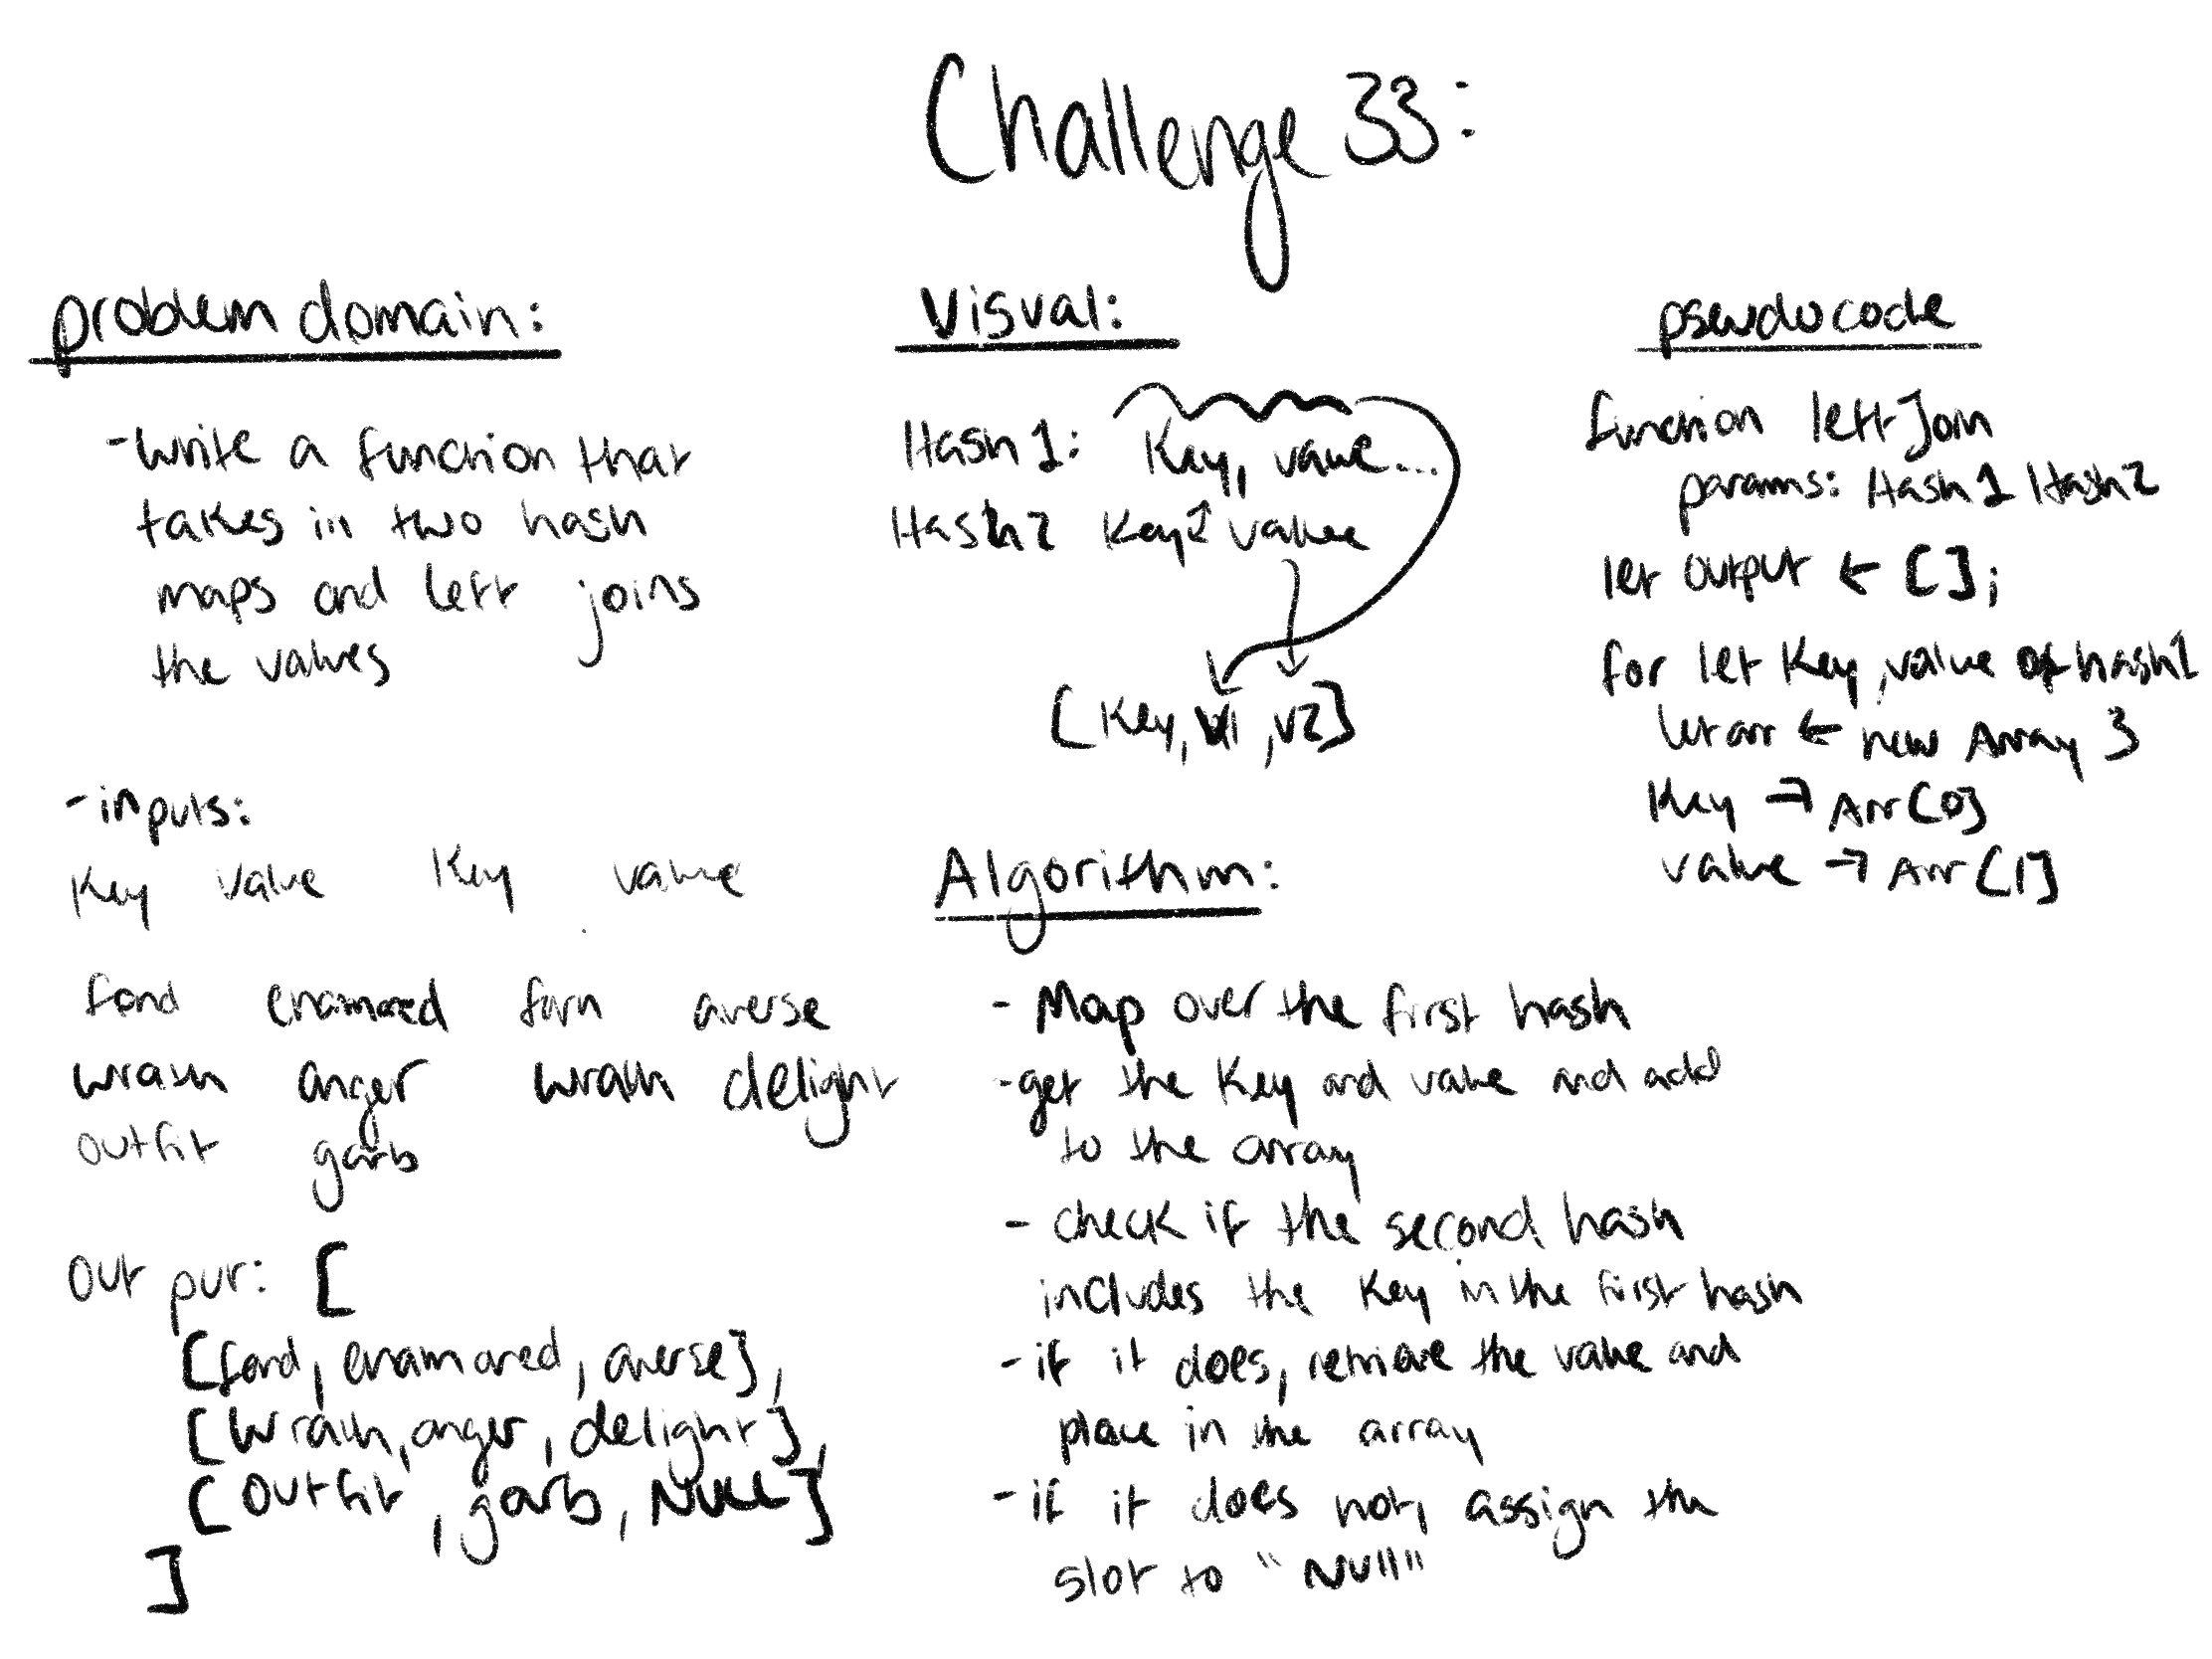 Challenge 33:
problem domain:
- write a function that
takes in two hash
maps and left joins
the values
- inputs:
Key value Key value
fond enamored forn averse
wrath anger wrath delight
outfit garb
Out put: [
[fond, enamored, averse],
[wrath, anger, delight],
[outfit, garb, NULL]
]
Visual:
Hash 1: Key, value...
Hash2 Key value
[Key, v1, v2]
Algorithm:
- Map over the first hash
- get the Key and value and add
to the array
- check if the second hash
includes the Key in the first hash
- if it does, retrieve the value and
place in the array
- if it does not, assign the
slot to "NUll"
pseudocode
function leftJoin
params: Hash1 Hash2
let output ← [];
for let Key, value of hash1
let arr ← new Array 3
Key → Arr[0]
value → Arr[1]